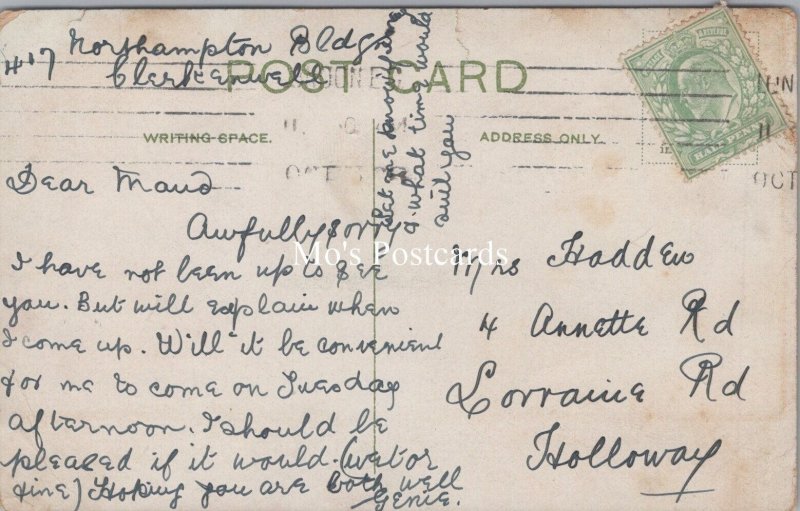 417 Northampton Bldgs
Clerkenwell
POST CARD
WRITING SPACE.
ADDRESS ONLY.
Dear Maud
Awfully sorry
I have not been up to see
you. But will explain when
I come up. Will it be convenient
for me to come on Tuesday
afternoon. I should be
pleased if it would. (wet or
fine) Hoping you are both well
Genie.
Let me know if any
& what time would
suit you
Mrs Hadden
4 Annette Rd
Lorraine Rd
Holloway
HALFPENNY
OCT
OCT
Mo's Postcards